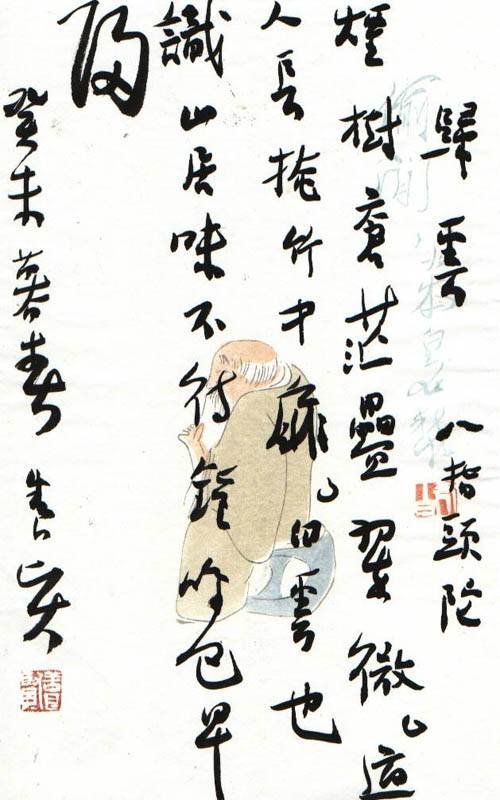 歸雲 八指頭陀
煙樹蒼茫疊翠微道
人長掩竹中扉白雲也
識山居味不待鐘鳴已早
歸
癸未暮春
偷閒